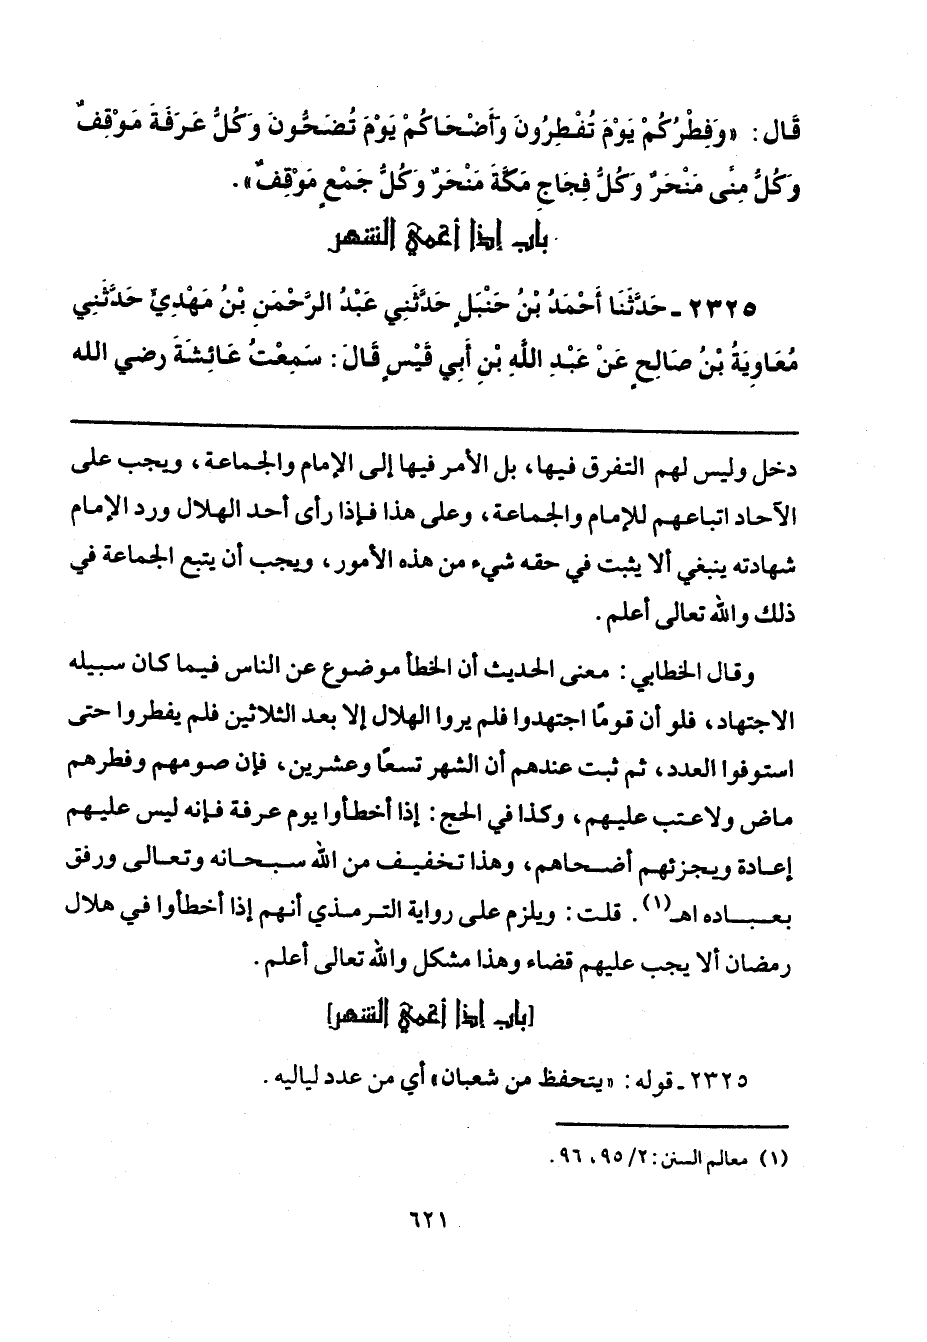 قَال: «وَفِطْرُكُمْ يَوْمَ تُفْطِرُونَ وَأَضْحَاكُمْ يَوْمَ تُضَحُّونَ وَكُلُّ عَرَفَةَ مَوْقِفٌ
وَكُلُّ مِنًى مَنْحَرٌ وَكُلُّ فِجَاجِ مَكَّةَ مَنْحَرٌ وَكُلُّ جَمْعٍ مَوْقِفٌ».
باب إذا أغمي الشهر
٢٣٢٥ ـ حَدَّثَنَا أَحْمَدُ بْنُ حَنْبَلٍ حَدَّثَنِي عَبْدُ الرَّحْمَنِ بْنُ مَهْدِيٍّ حَدَّثَنِي
مُعَاوِيَةُ بْنُ صَالِحٍ عَنْ عَبْدِ اللَّهِ بْنِ أَبِي قَيْسٍ قَالَ: سَمِعْتُ عَائِشَةَ رضي الله
دخل وليس لهم التفرق فيها، بل الأمر فيها إلى الإمام والجماعة، ويجب على
الآحاد اتباعهم للإمام والجماعة، وعلى هذا فإذا رأى أحد الهلال ورد الإمام
شهادته ينبغي ألا يثبت في حقه شيء من هذه الأمور، ويجب أن يتبع الجماعة في
ذلك والله تعالى أعلم.
وقال الخطابي: معنى الحديث أن الخطأ موضوع عن الناس فيما كان سبيله
الاجتهاد، فلو أن قومًا اجتهدوا فلم يروا الهلال إلا بعد الثلاثين فلم يفطروا حتى
استوفوا العدد، ثم ثبت عندهم أن الشهر تسعًا وعشرين، فإن صومهم وفطرهم
ماض ولاعتب عليهم، وكذا في الحج: إذا أخطأوا يوم عرفة فإنه ليس عليهم
إعادة ويجزئهم أضحاهم، وهذا تخفيف من الله سبحانه وتعالى ورفق
بعباده اهـ(١). قلت: ويلزم على رواية الترمذي أنهم إذا أخطأوا في هلال
رمضان ألا يجب عليهم قضاء وهذا مشكل والله تعالى أعلم.
[باب إذا أغمي الشهر]
٢٣٢٥ ـ قوله: «يتحفظ من شعبان» أي من عدد لياليه.
(١) معالم السنن: ٢/ ٩٥، ٩٦.
٦٢١